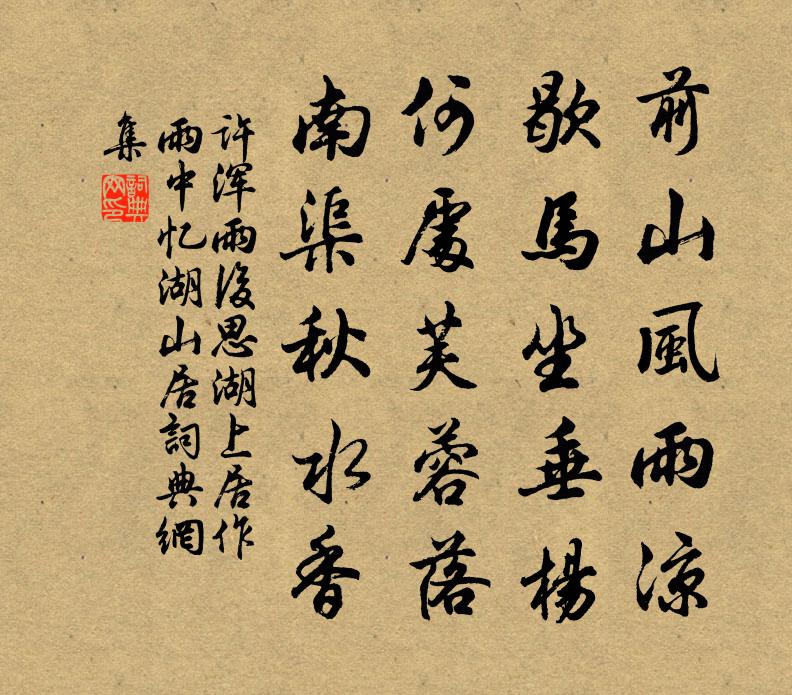 前山風雨涼
歇馬坐垂楊
何處芙蓉落
南渠秋水香
许浑雨後思湖上居作
雨中忆湖山居詞典網
集
詞典
网印